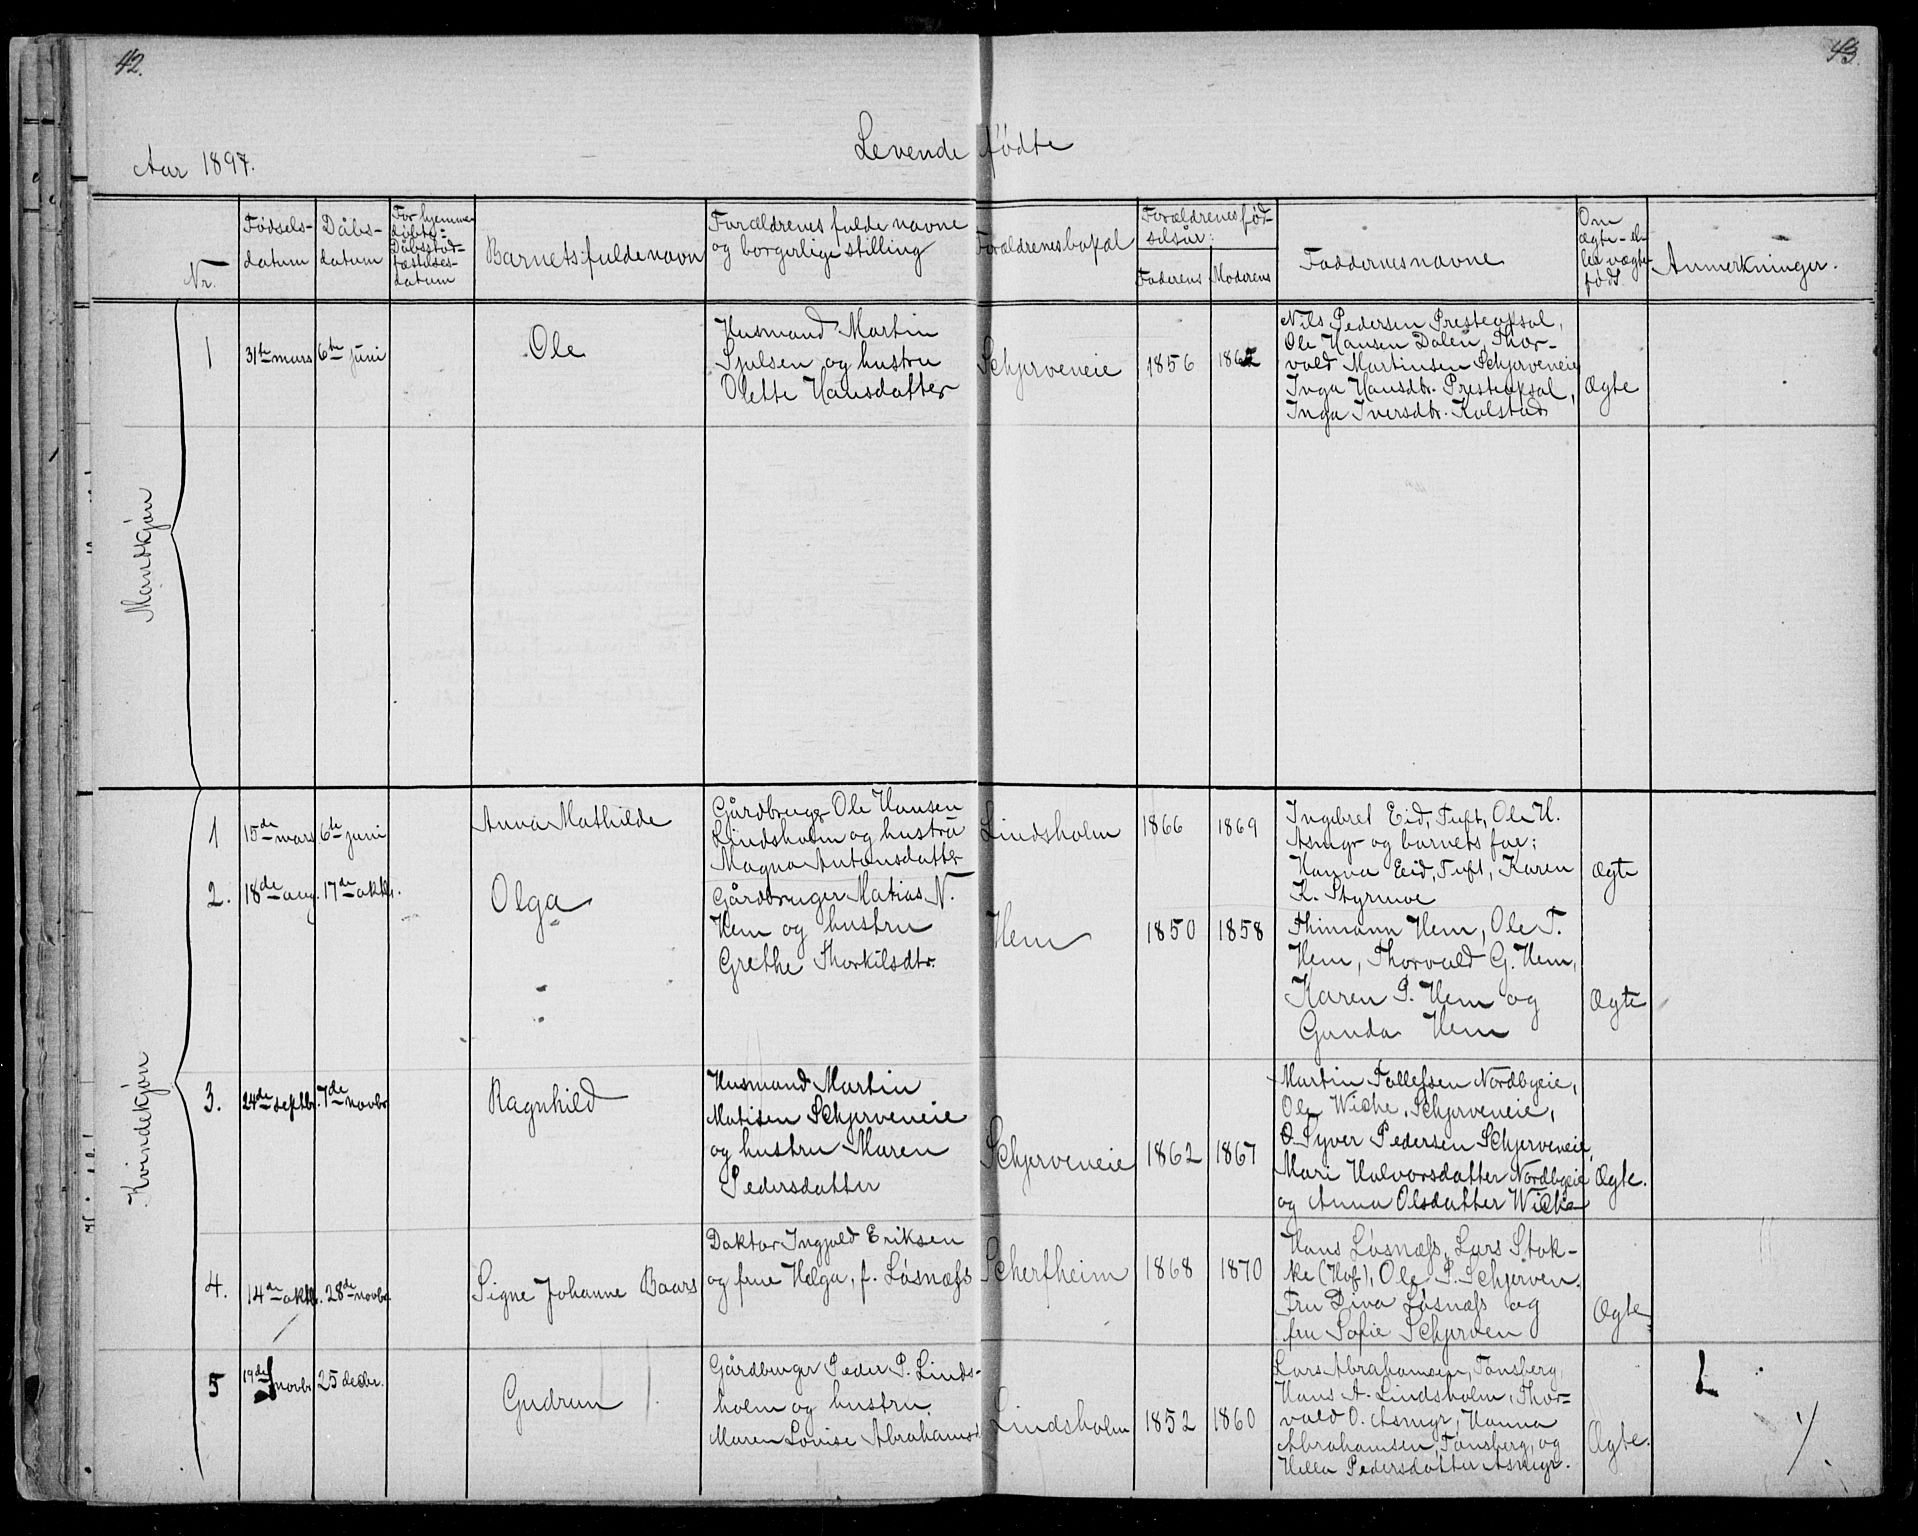 42.
43.
Aar 1897.
Levende fødte
Nr.
Fødsels-
datum
Dåbs-
datum
For hjemme-
døbte:
Dåbsstad-
fæstelses-
datum
Barnets fulde navn
Forældrenes fulde navne
og borgerlige stilling
Forældrenes bopæl
Forældrenes fød-
selsår:
Faderens
Moderens
Faddernes navne
Om
ægte- el-
ler uægte
født
Anmerkninger.
Mandkjøn
1
31te mars
6te juni
Ole
Husmand Martin
Sjulsen og hustru
Olette Hansdatter
Schjerveneie
1856
1862
Nils Pedersen Presteaksal,
Ole Hansen Dalen, Thor-
vald Martinsen Schjerveneie
Inga Hansdtr. Presteaksal,
Inga Iversdtr. Kolstad
Ægte
Kvindekjøn
1
15de mars
6te juni
Anna Mathilde
Gårdbruger Ole Hansen
Lindsholm og hustru
Magna Antonsdatter
Lindsholm
1866
1869
Ingebret Eid, Tuft, Ole H.
Asmyr og barnets far;
Hanna Eid, Tuft, Karen
K. Styrmoe
Ægte
2.
18de aug.
17de oktbr.
Olga
Gårdbruger Matias N.
Hem og hustru
Grethe Thorkilsdtr.
Hem
1850
1858
Thimann Hem, Ole T.
Hem, Thorvald G. Hem,
Karen P. Hem og
Gunda Hem
Ægte
3.
24de septbr.
7de novbr.
Ragnhild
Husmand Martin
Matisen Schjerveneie
og hustru Maren
Pedersdatter
Schjerveneie
1862
1867
Martin Tollefsen Nordbyeie,
Ole Wiche, Schjerveneie,
O. Syver Pedersen Schjerveneie,
Mari Halvorsdatter Nordbyeie
og Anna Olsdatter Wiche
Ægte.
4.
14de oktbr.
28de novbr.
Signe Johanne Baars
Doktor Ingjald Eriksen
og frue Helga, f. Løsnæss
Scherfheim
1868
1870
Hans Løsnæss, Lars Stok-
ke (Hof), Ole P. Schjerven.
Fru Dina Løsnæss og
fru Sofie Schjerven
Ægte
5
19de novbr.
25 decbr.
Gudrun
Gårdbruger Peder P. Linds-
holm og hustru
Maren Lovise Abrahamsd.
Lindsholm
1852
1860
Lars Abrahamsen, Tønsberg,
Hans A. Lindsholm, Thor-
vald O. Asmyr, Hanna
Abrahamsen, Tønsberg, og
Hella Pedersdatter Asmyr.
Ægte.
L